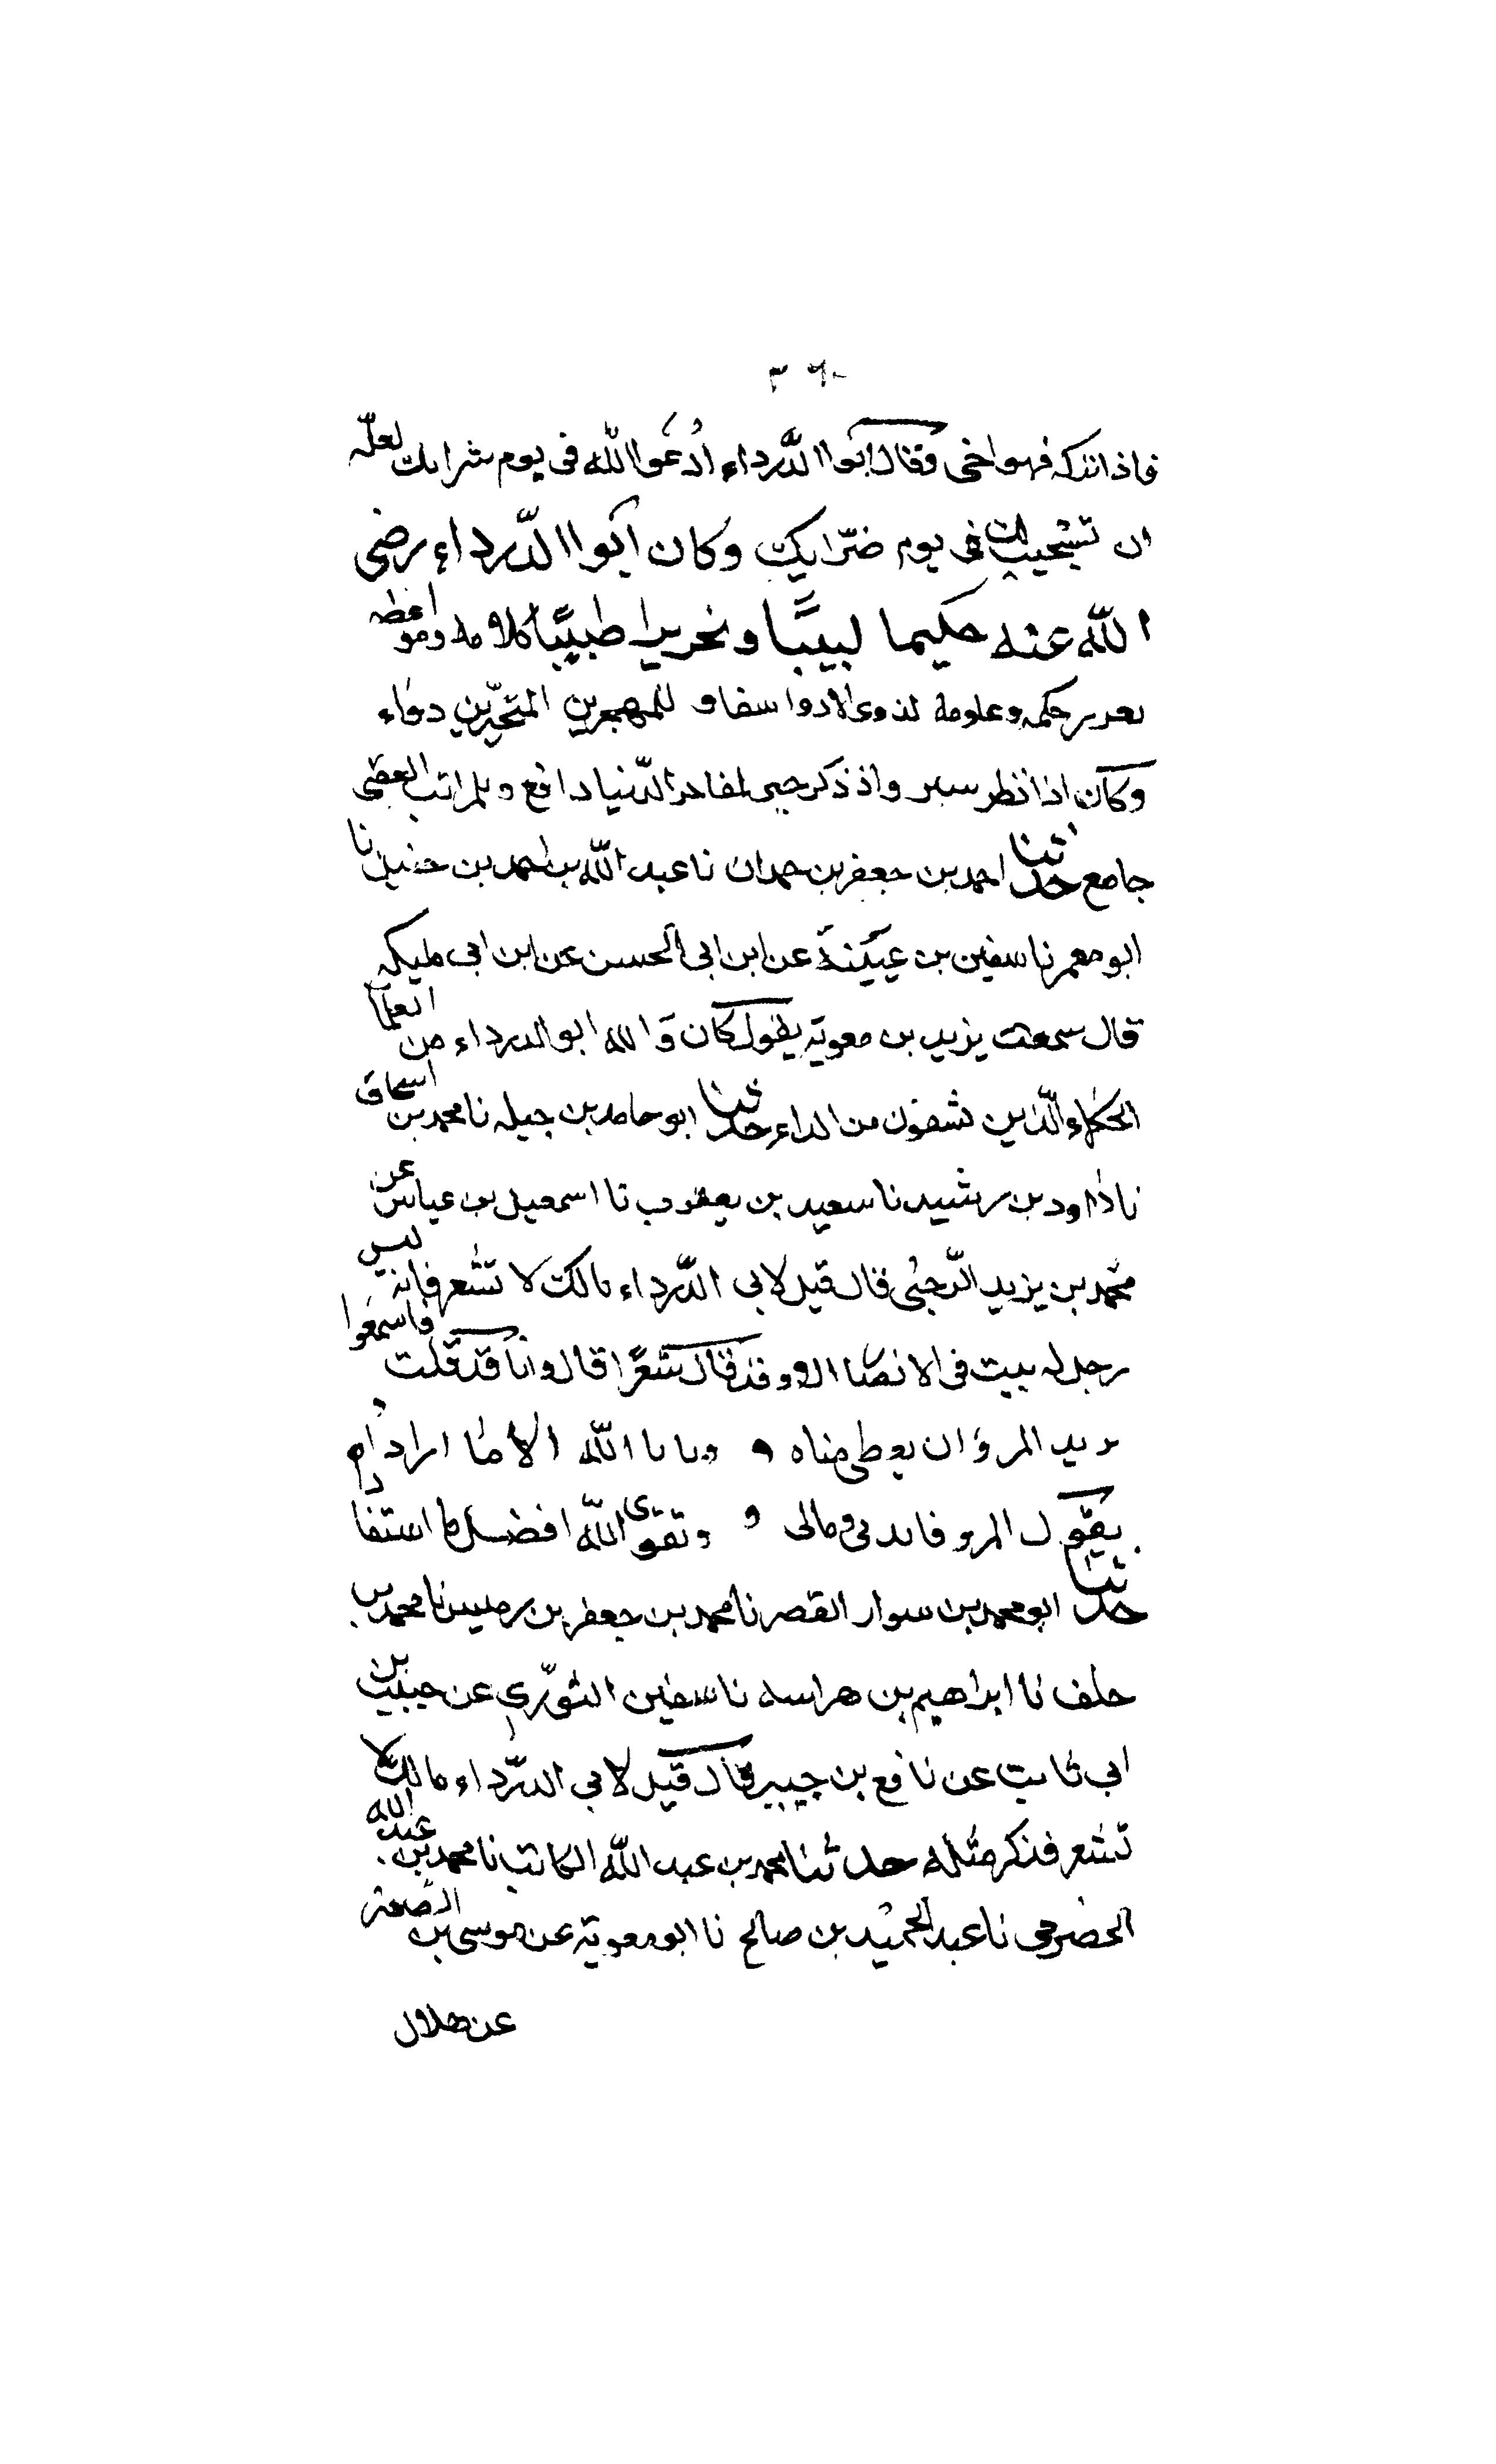 ٣٦٠
فاذا تركه فهو اخى وقال ابوا الدّرداء ادعوا الله فى يوم سرايك لعلّه
ان تستجيب لك فى يوم ضرّايك وكان ابوا الدّرداء رضى
الله عنه حكيما لبيبًا ونحريرا طبيبًا كلامه ومواعظه
وعلومه لذوى الادوا شفا و للمهجرين المتحيّرين دواء
وكان اذا نظر سبر واذ ذكر الدّنيا دافع و لمراتب العقبى
جامع حدثنا احمد بن جعفر بن حمدان نا عبد الله بن احمد بن حنبل نا
ابو معمر نا سفين بن عيينة عن ابن ابى الحسن عن ابن ابى مليكه
قال سمعت يزيد بن معوية يقول كان والله ابو الدرداء من العلما
الحكماء الّذين يشفون من الداء حدثنا ابو حامد بن جبله نا محمد بن اسحاق
نا داود بن رشيد نا سعيد بن يعقوب نا اسمعيل بن عياش عن
محمد بن يزيد الرّحبى قال قيل لابى الدّرداء مالك لا تشعر فانه ليس
رجل له بيت فى الانصار الا وقد قال شعرًا قال وانا قد قلت فاسمعوا
يريد المرؤ ان يعطى مناه و ويابا الله الا ما ارادا
يقول المرو فايدتى ومالى و وتقوى الله افضل ما استفادا
حدثنا ابو محمد بن سوار القصر نا محمد بن جعفر بن رميس نا محمد بن
خلف نا ابراهيم بن هراسه نا سفين الثورى عن حبيب بن
ابى ثابت عن نافع بن جبير قال قيل لابى الدّرداء مالك لا
تشعر فذكر مثله حدثنا محمد بن عبد الله الكاتب نا محمد بن عبد الله
الحضرمى نا عبد الحميد بن صالح نا ابو معوية عن موسى بن الصغير
عن هلال